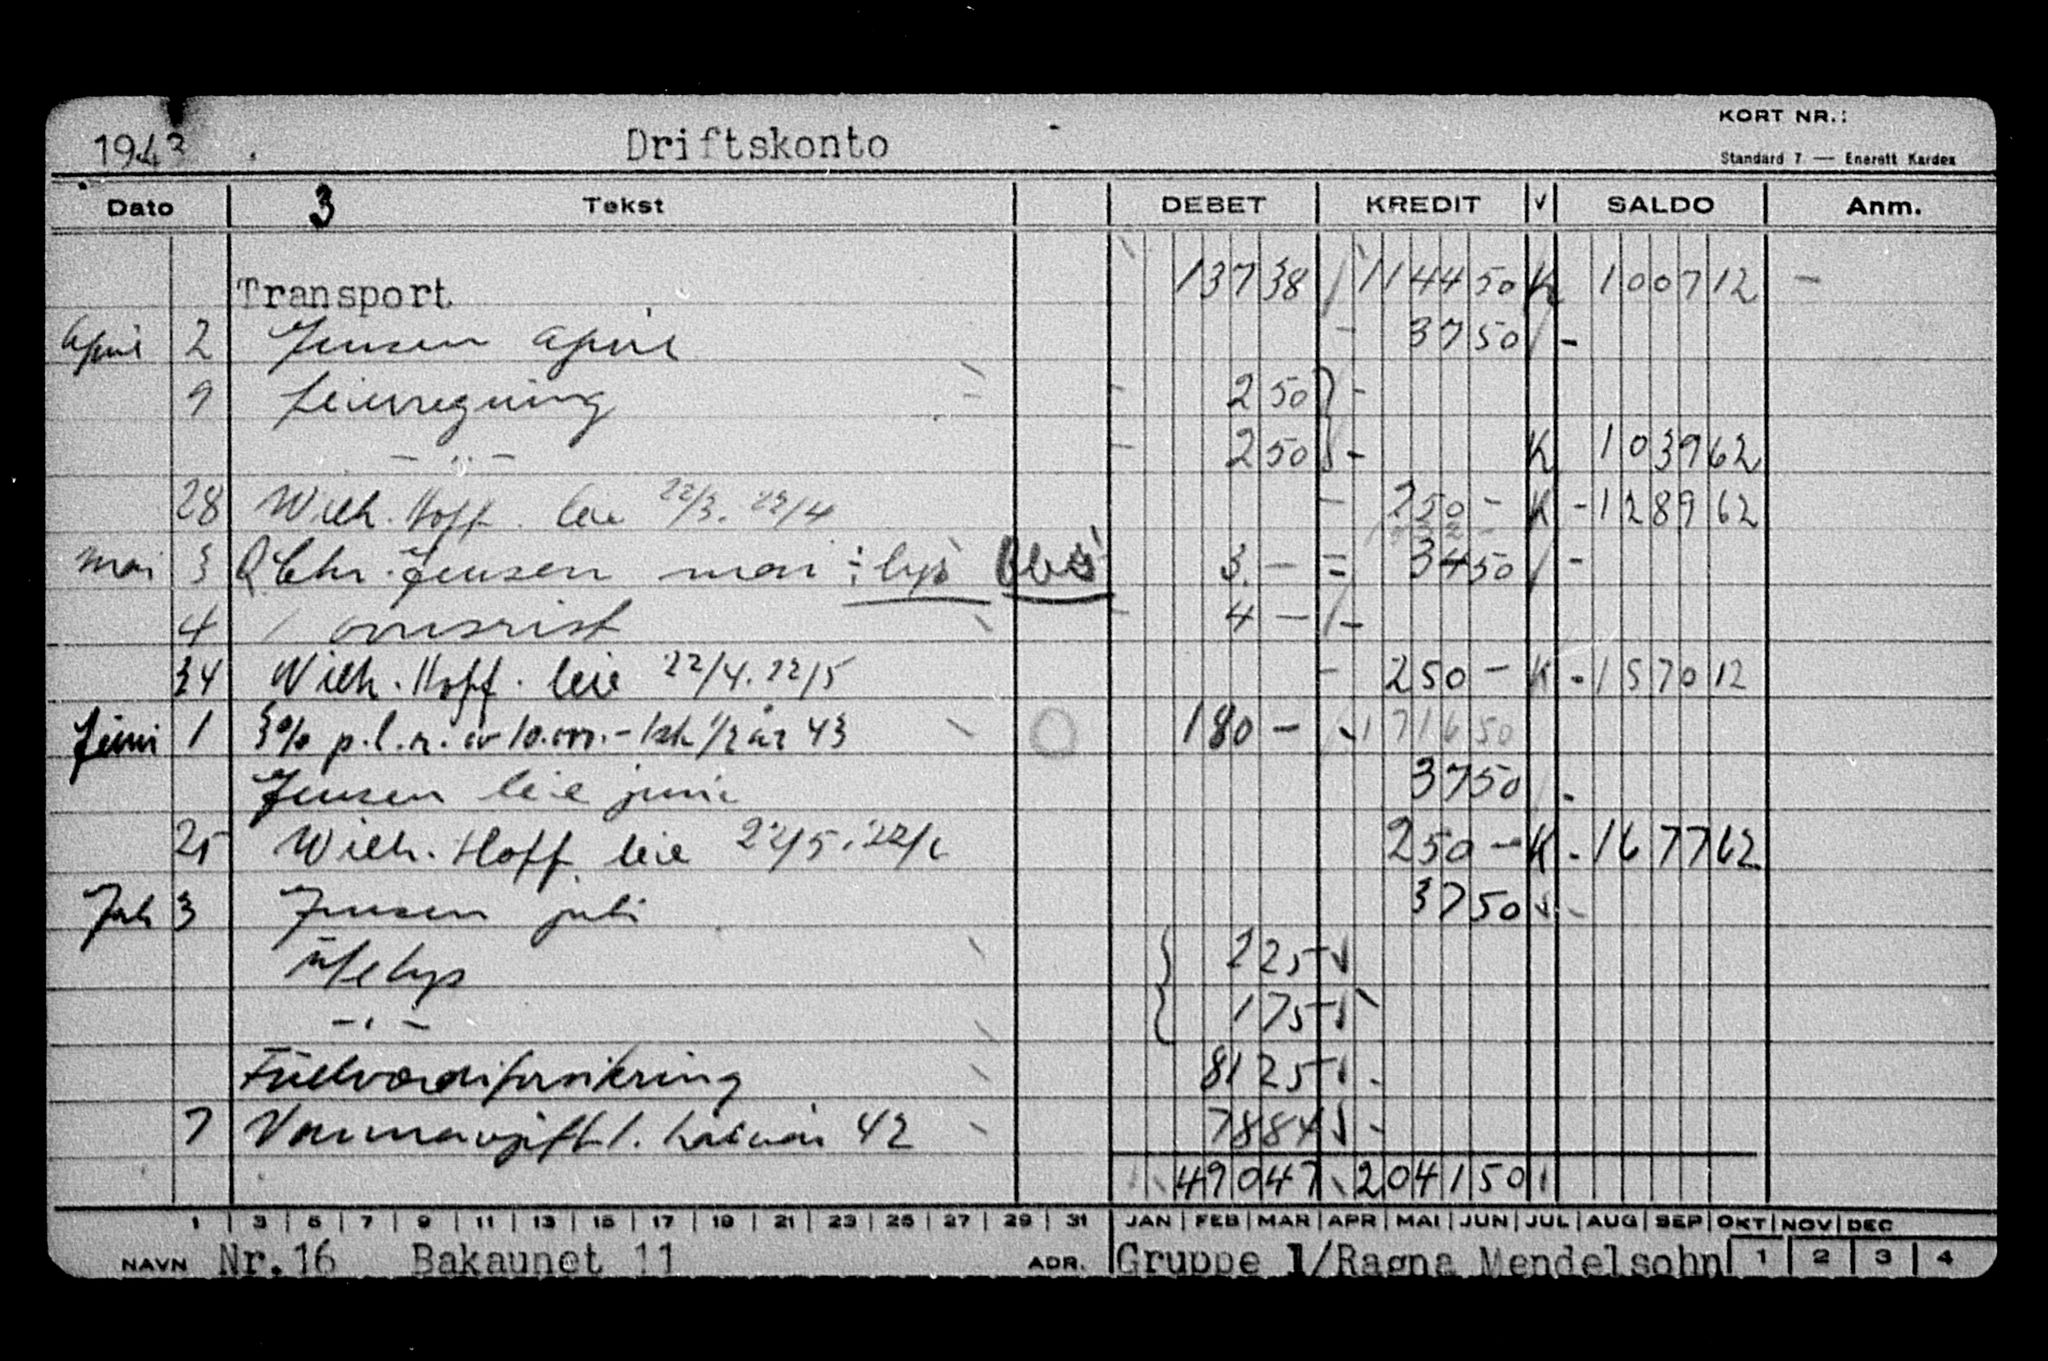 KORT NR.:
1943 Driftskonto
Standard 7 — Enerett Kardex
Dato 3 Tekst DEBET KREDIT V SALDO Anm.
Transport 137 38 1144 50 K 1007 12
April 2 Jensen april 37 50
9 feieregning 2 50
— " — 2 50 K 1039 62
28 Wilh. Hoff. leie 22/3. 22/4 250 - K 1289 62
Mai 3 Chr. Jensen mai ÷ lys Obs 3. - = 34 50
4 4 -
24 Wilh. Hoff. leie 22/4. 22/5 250 - K 1570 12
Juni 1 3% p.l.n. av 1/2 år 43 180 - 1716 50
Jensen leie juni 37 50
25 Wilh. Hoff leie 22/5. 22/6 250 - K 1677 62
Juli 3 Jensen juli 37 50
Utelys 2 25
— " — 1 75
Fullverdiforsikring 81 25
7 Vannavgift 1. halvår 42 78 84
490 47 2041 50
1 3 5 7 9 11 13 15 17 19 21 23 25 27 29 31 JAN FEB MAR APR MAI JUN JUL AUG SEP OKT NOV DEC
NAVN Nr.16 Bakaunet 11 ADR. Gruppe 1/Ragna Mendelsohn 1 2 3 4